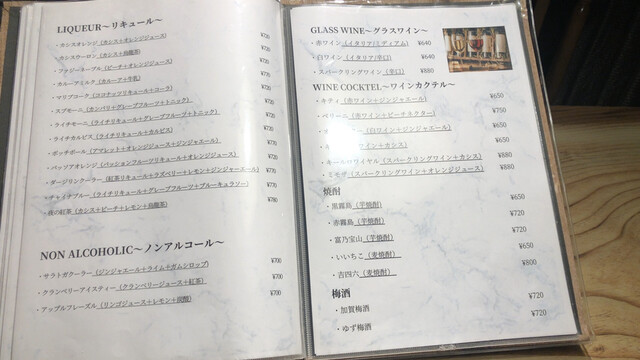 LIQUEUR～リキュール～
・カシスオレンジ（カシス＋オレンジジュース） ¥720
・カシスウーロン（カシス＋烏龍茶） ¥720
・ファジーネーブル（ピーチ＋オレンジジュース） ¥720
・カルーアミルク（カルーア＋牛乳） ¥720
・マリブコーク（ココナッツリキュール＋コーラ） ¥720
・スプモーニ（カンパリ＋グレープフルーツ＋トニック） ¥720
・ライチモーニ（ライチリキュール＋グレープフルーツ＋トニック） ¥720
・ライチカルピス（ライチリキュール＋カルピス） ¥720
・ボッチボール（アマレット＋オレンジジュース＋ジンジャエール） ¥770
・パッソアオレンジ（パッションフルーツリキュール＋オレンジジュース） ¥720
・ダージリンクーラー（紅茶リキュール＋ラズベリー＋レモン＋ジンジャーエール） ¥770
・チャイナブルー（ライチリキュール＋グレープフルーツ＋ブルーキュラソー） ¥770
・夜の紅茶（カシス＋ピーチ＋レモン＋烏龍茶） ¥780
NON ALCOHOLIC～ノンアルコール～
・サラトガクーラー（ジンジャエール＋ライム＋ガムシロップ） ¥700
・クランベリーアイスティー（クランベリージュース＋紅茶） ¥700
・アップルフレーズル（リンゴジュース＋レモン＋炭酸） ¥700
GLASS WINE～グラスワイン～
・赤ワイン（イタリア/ミディアム） ¥640
・白ワイン（イタリア/辛口） ¥640
・スパークリングワイン（辛口） ¥880
WINE COCKTEL～ワインカクテル～
・キティ（赤ワイン＋ジンジャエール） ¥650
・ベリーニ（赤ワイン＋ピーチネクター） ¥750
（白ワイン＋ジンジャエール） ¥650
ワイン＋カシス） ¥650
・キールロワイヤル（スパークリングワイン＋カシス） ¥880
・ミモザ（スパークリングワイン＋オレンジジュース） ¥880
焼酎
・黒霧島（芋焼酎） ¥650
・赤霧島（芋焼酎） ¥720
・富乃宝山（芋焼酎） ¥720
・いいちこ（麦焼酎） ¥650
・吉四六（麦焼酎） ¥800
梅酒
・加賀梅酒 ¥720
・ゆず梅酒 ¥720